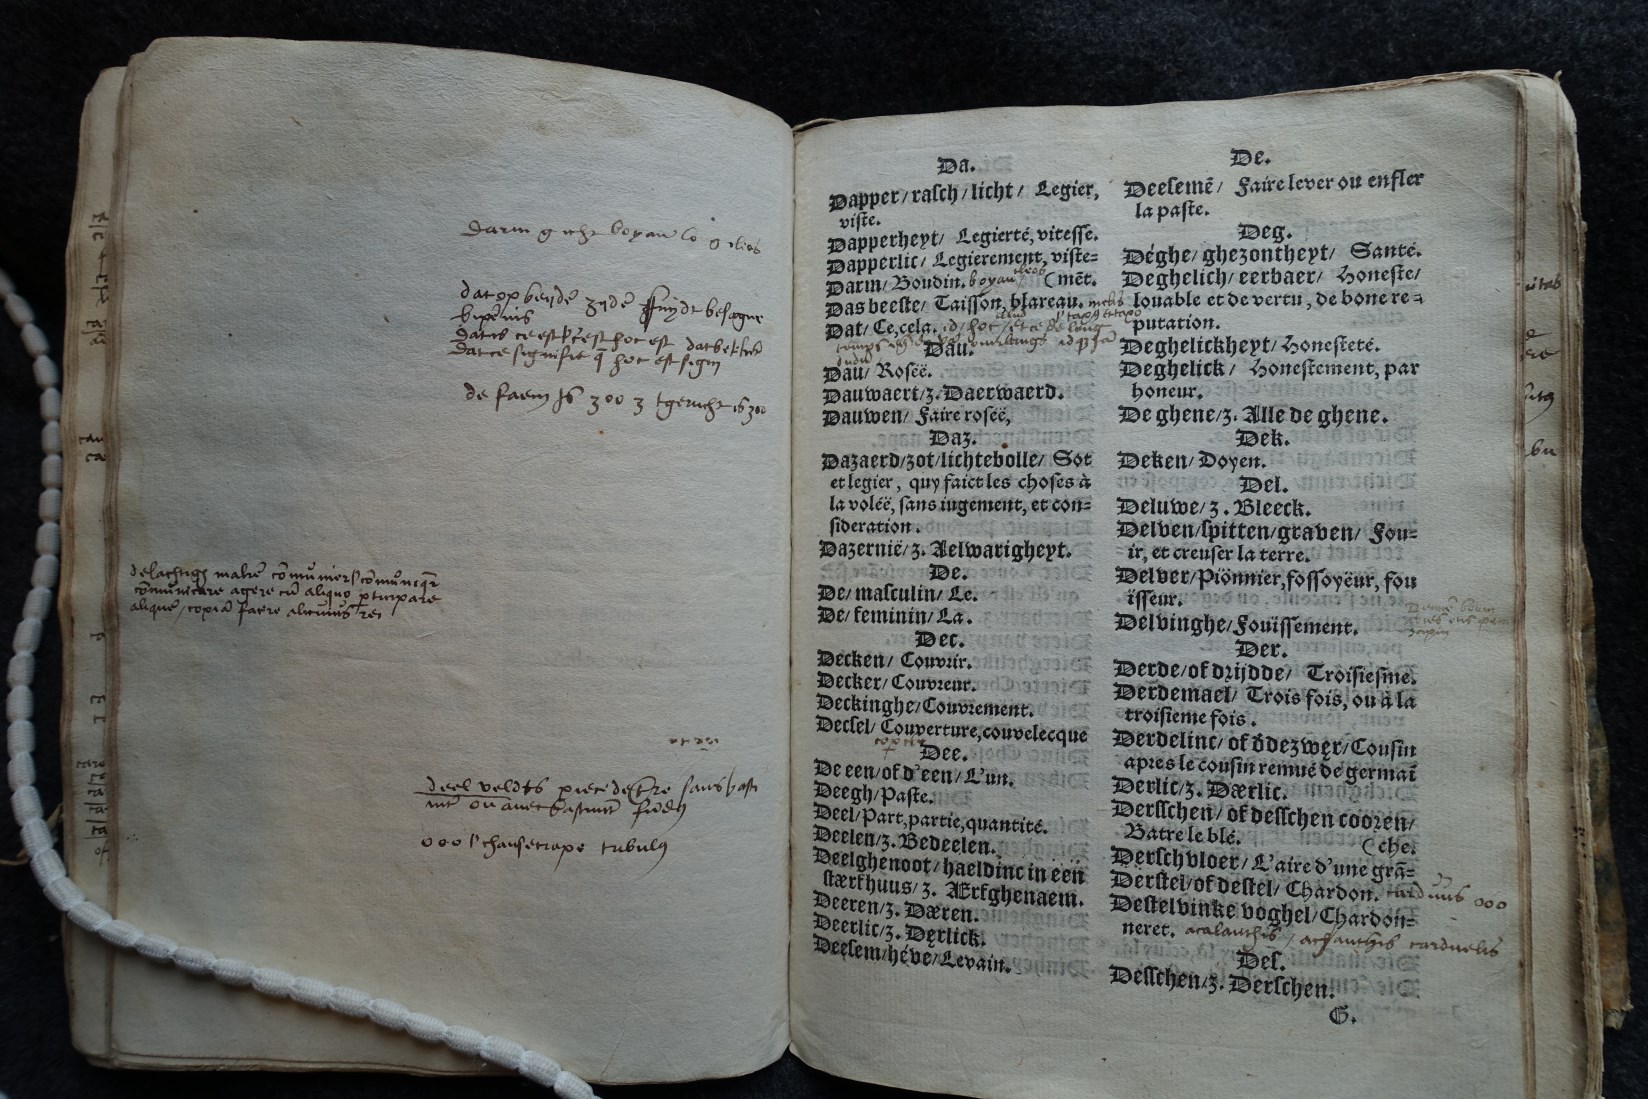 Darm
dat op beyde zijde
dat is ce est hoc est
dat ce signifie hoc est
de faem is 300 z tgerucht is 300
delachtigh maken
communicare agere cum aliquo participare
deel velds piece de terre sans
000 chausetrape tribulus
Da.
Dapper/ rasch/ licht/ Legier,
viste.
Dapperheyt/ Legierté, vitesse.
Dapperlic/ Legierement, viste=
Darm/ Boudin. boyau (mēt.
Das beeste/ Taisson, blareau. melis
Dat/ Ce, cela. id/ hoc/
Dau.
Dau/ Roseë.
Dauwaert/z. Daerwaerd.
Dauwen/ Faire roseë,
Daz.
Dazaerd/zot/lichtebolle/ Sot
et legier, quy faict les choses à
la voleë, sans iugement, et con=
sideration.
Dazernië/z. Aelwarigheyt.
De.
De/ masculin/ Le.
De/ feminin/ La.
Dec.
Decken/ Couvrir.
Decker/ Couvreur.
Deckinghe/Couvrement.
Decsel/ Couverture,couvelecque
Dee.
De een/of d'een/ L'un.
Deegh/Paste.
Deel/Part,partie,quantité.
Deelen/z. Bedeelen.
Deelghenoot/ haeldinc in eën
stærfhuus/ z. Ærfghenaem.
Deeren/z. Dæren.
Deerlic/z. Dęrlick.
Deesem/héve/Levain.
De.
Deesemē/ Faire lever ou enfler
la paste.
Deg.
Déghe/ ghezontheyt/ Santé.
Deghelich/ eerbaer/ Honeste/
louable et de vertu, de bone re=
putation.
Deghelickheyt/ Honesteté.
Deghelick/ Honestement, par
honeur.
De ghene/z. Alle de ghene.
Dek.
Deken/ Doyen.
Del.
Deluwe/z. Bleeck.
Delven/spitten/graven/ Fou=
ir, et creuser la terre.
Delver/Piönnier,fossoyëur, fou
ïsseur.
Delvinghe/Fouïssement.
Der.
Derde/of drijdde/ Troisiesme.
Derdemael/ Trois fois, ou à la
troisieme fois.
Derdelinc/ of Cousin
apres le cousin remué de germaī
Derlic/z. Dærlic.
Derschen/ of desschen cooren/
Batre le blé. (che.
Derschvloer/ L'aire d'une grā=
Derstel/of destel/ Chardon. carduus 000
Destelvinke voghel/Chardon=
neret. acalanthis/ acanthis carduelis
Des.
Desschen/z. Derschen.
G.